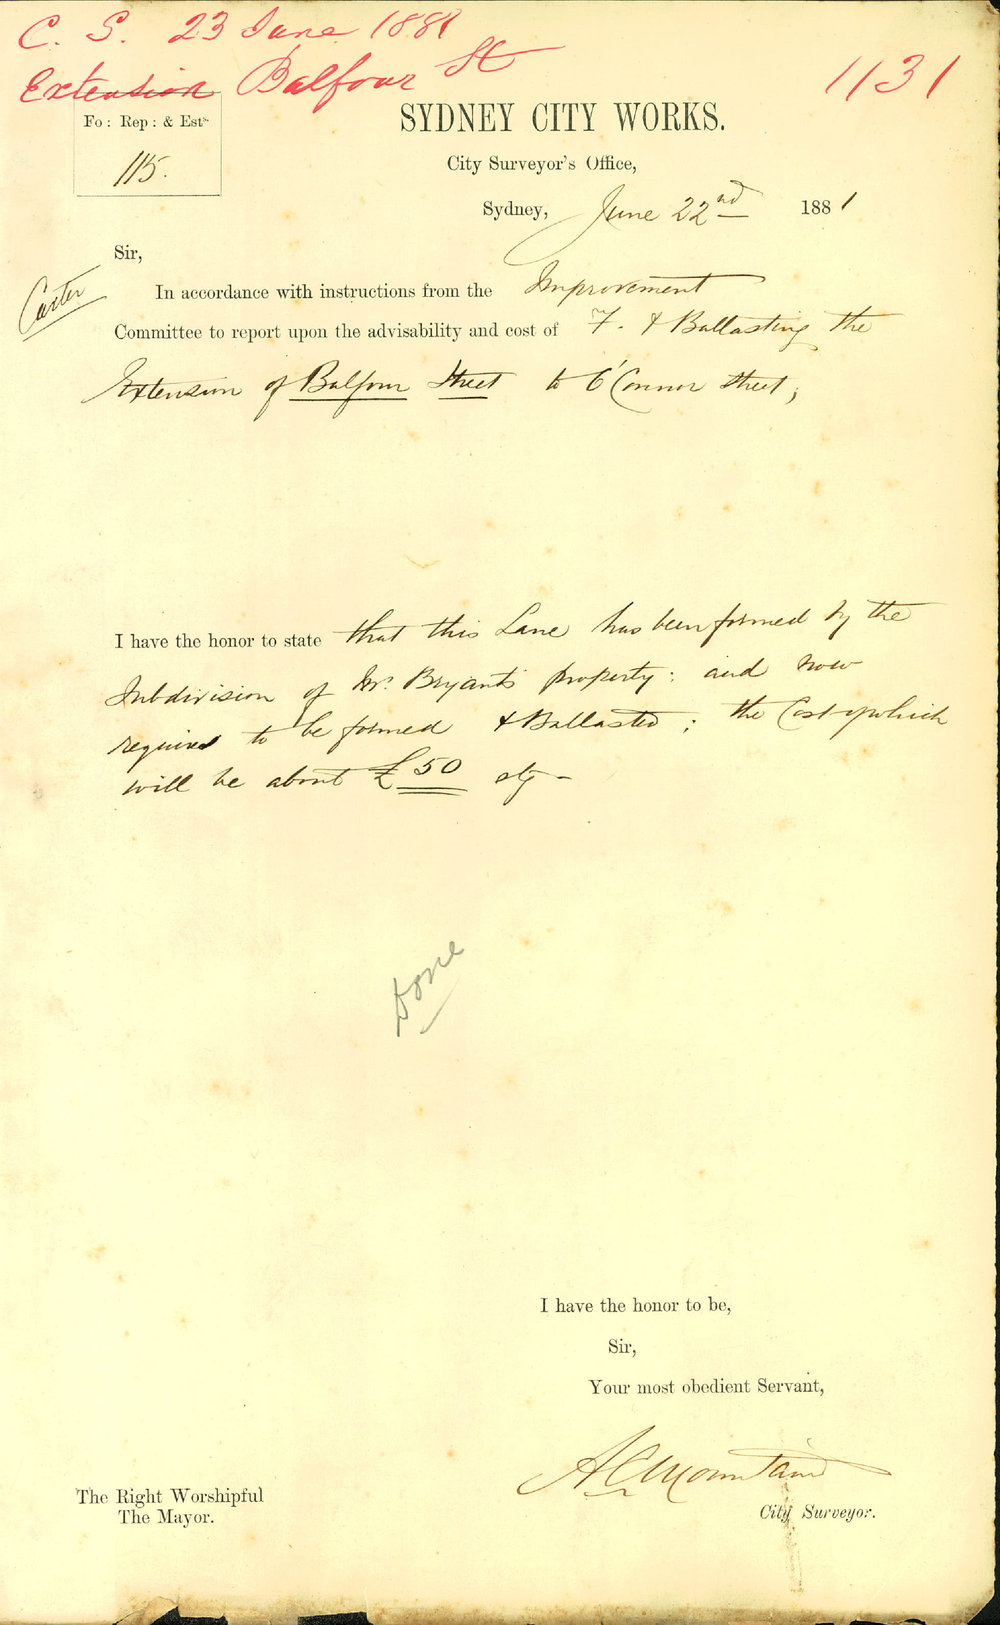 C. S. 23 June 1881
Extension Balfour St
1131
Fo: Rep: & Ests
115.
SYDNEY CITY WORKS.
City Surveyor's Office,
Sydney, June 22nd 1881
Sir,
Carter
In accordance with instructions from the Improvement
Committee to report upon the advisability and cost of F. & Ballasting the
Extension of Balfour Street to O'Connor Street;
I have the honor to state that this Lane has been formed by the
Subdivision of Mr. Bryant's property; and now
requires to be formed & Ballasted; the Cost of which
will be about £50 stg -
Done
I have the honor to be,
Sir,
Your most obedient Servant,
A C Mountain
City Surveyor.
The Right Worshipful
The Mayor.